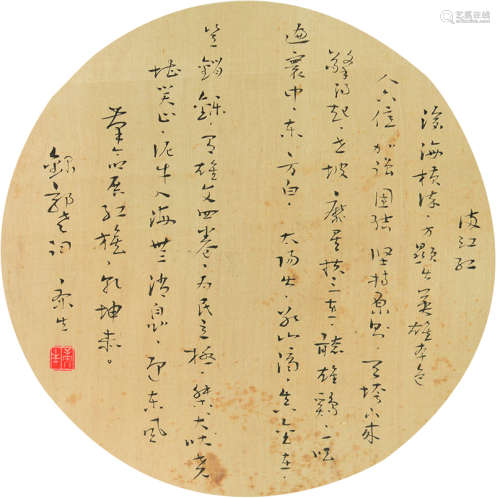 满江红
滄海横流，方顯出英雄本色
人六億，加强團结，坚持原则，天垮下来
擎得起，世披靡矣扶之直，聽雄鷄一唱
遍寰中，东方白，太陽出，冰山滴，真金在，
豈銷鑠，有雄文四卷，为民立極，桀犬吠尧
堪笑止，泥牛入海無消息，迎东風
革命展红旗，乾坤赤。
錄郭老词